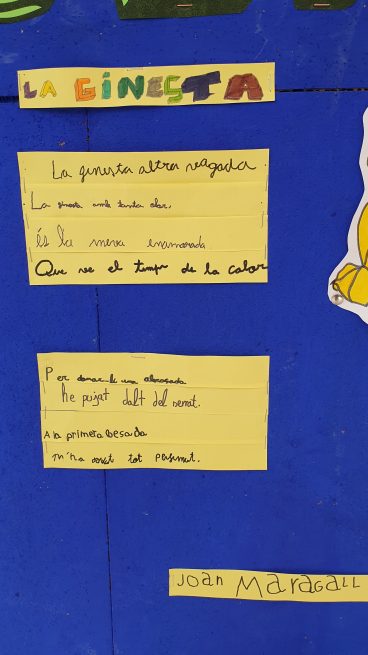 LA GINESTA
La ginesta altra vegada
La ginesta amb tanta olor,
és la meva enamorada
Que ve el temps de la calor
Per donar-li una abraçada
he pujat dalt del serrat.
A la primera besada
m'ha omplit tot perfumat.
JOAN MARAGALL